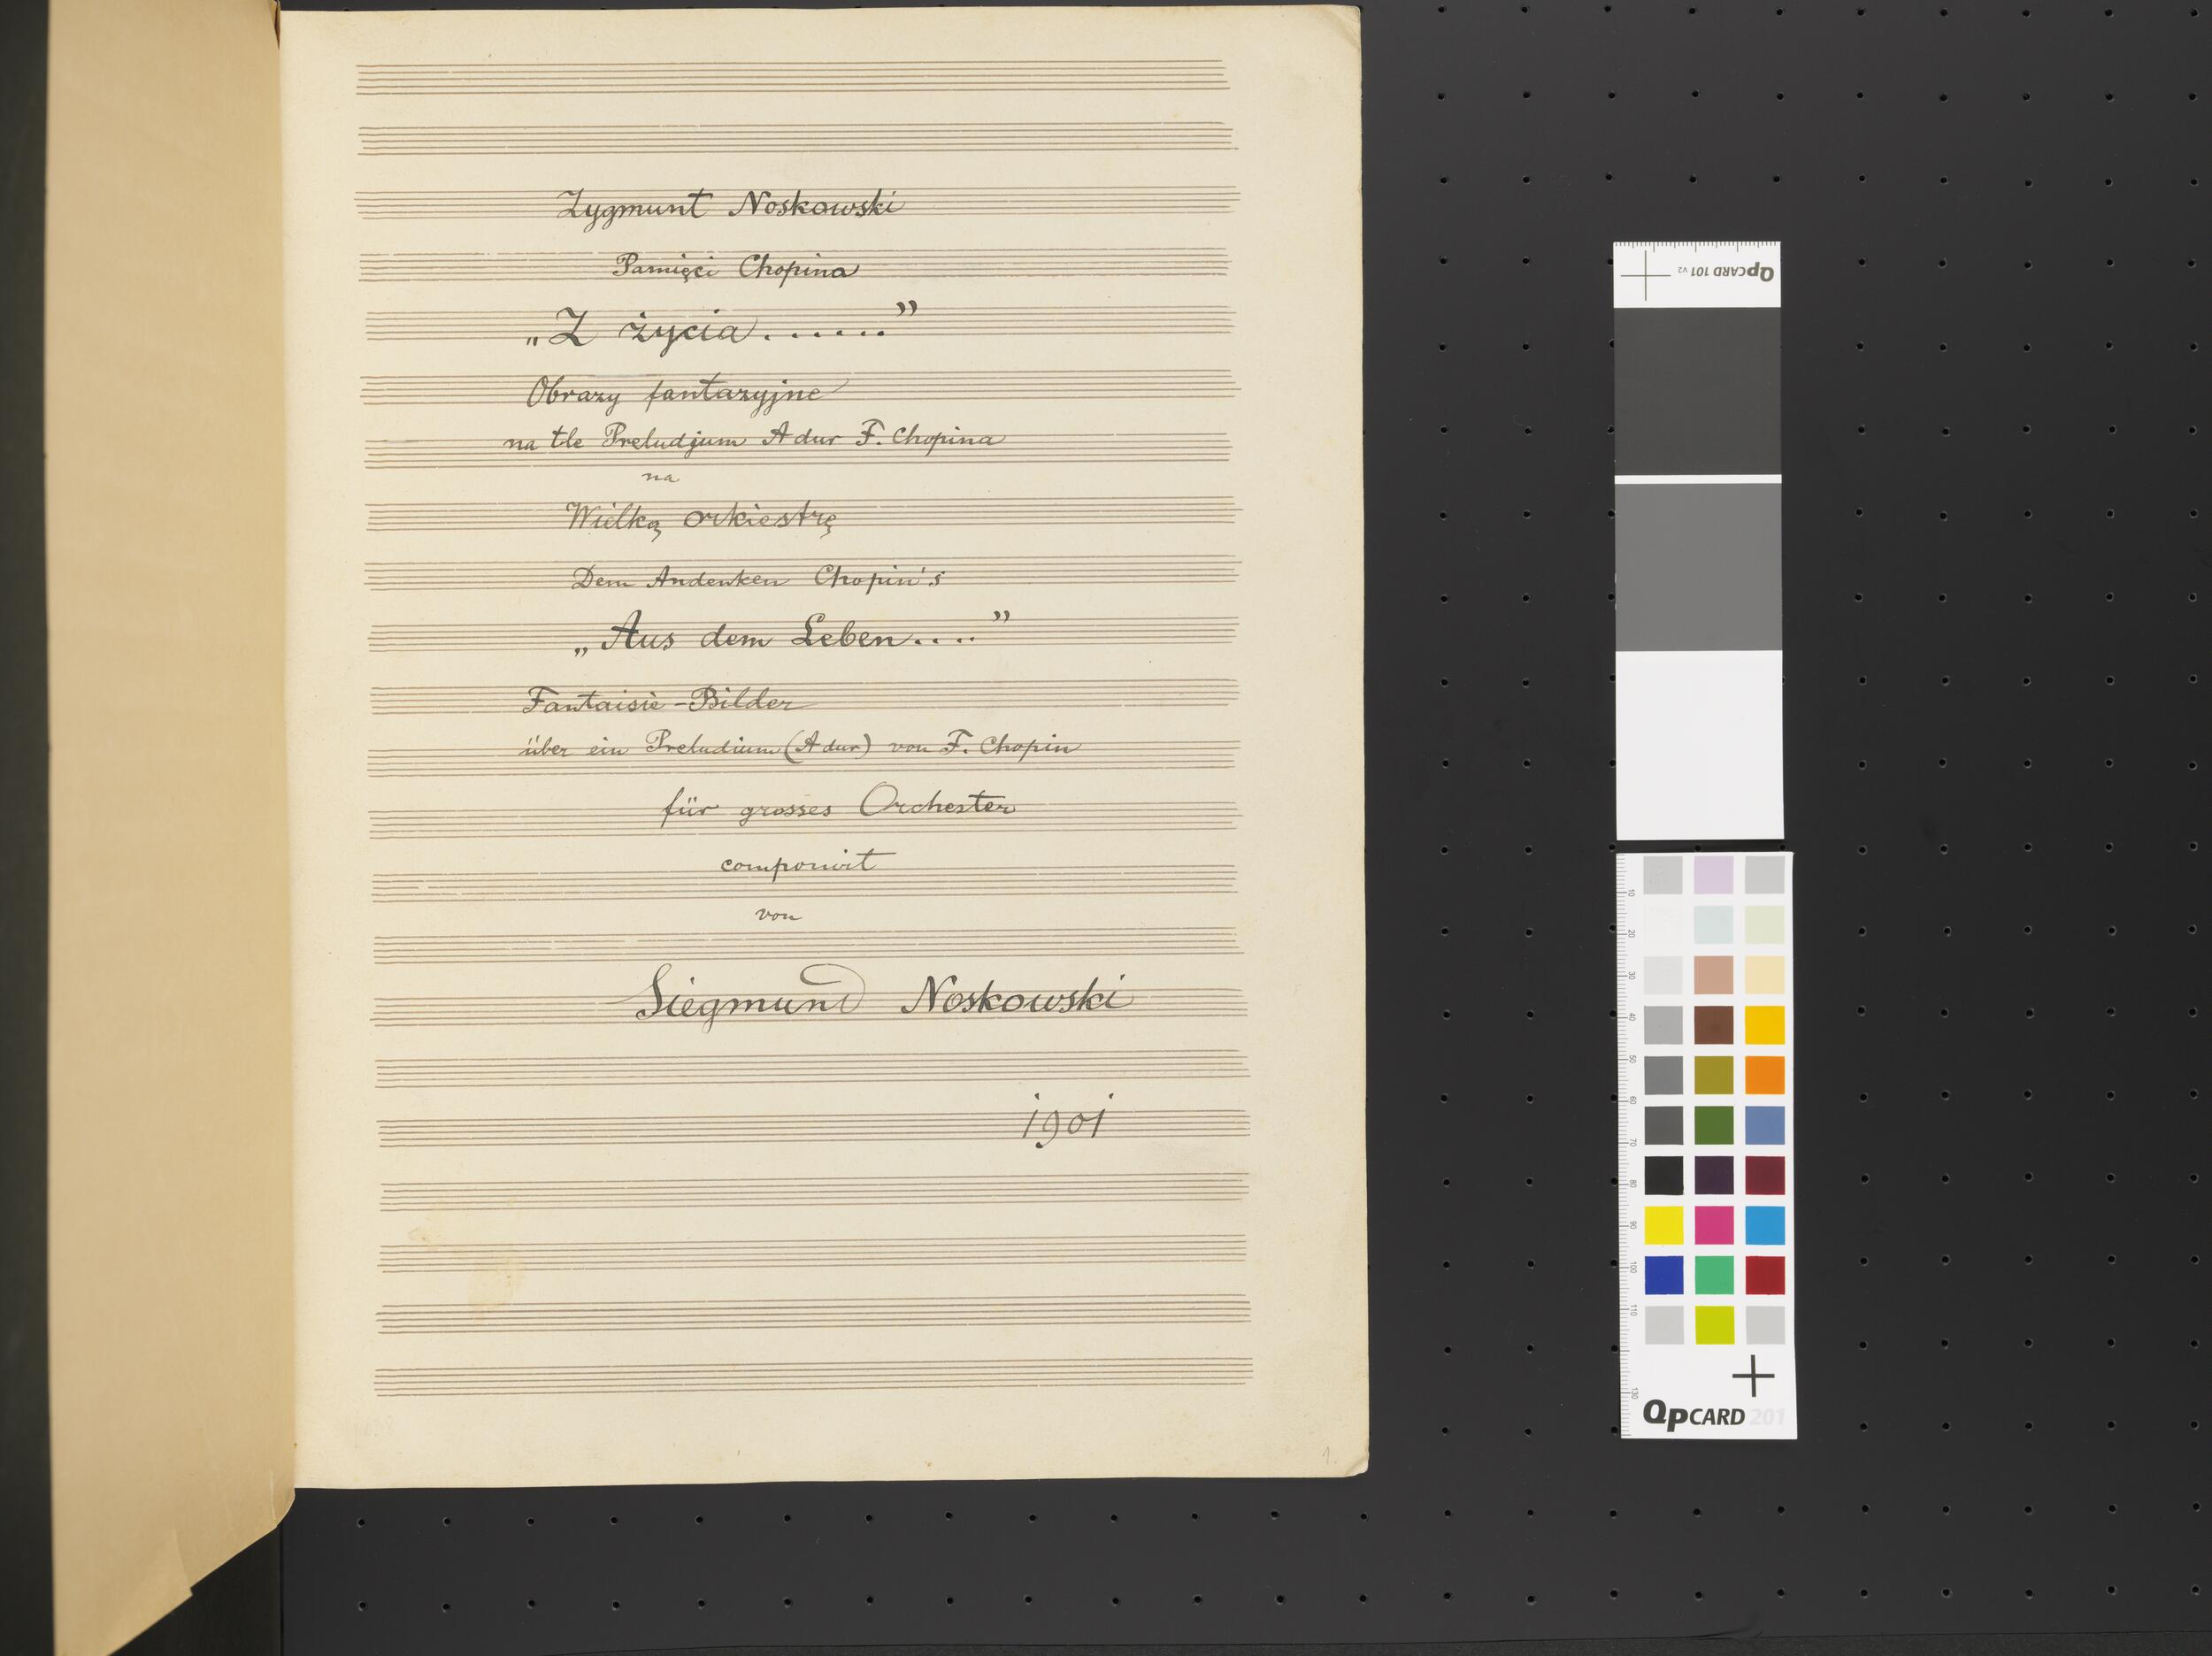 Zygmunt Noskowski
Pamięci Chopina
„Z życia......”
Obrazy fantazyjne
na tle Preludjum A dur F. Chopina
na
Wielką orkiestrę
Dem Andenken Chopin's
„Aus dem Leben....”
Fantaisie-Bilder
über ein Preludium (A dur) von F. Chopin
für grosses Orchester
componirt
von
Siegmund Noskowski
1901
1.
QPCARD 101 v2
10
20
30
40
50
60
70
80
90
100
110
130
QPCARD 201